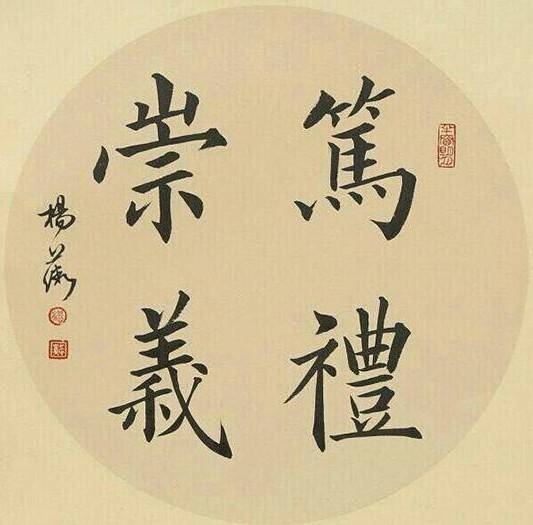 篤禮
崇義
楊